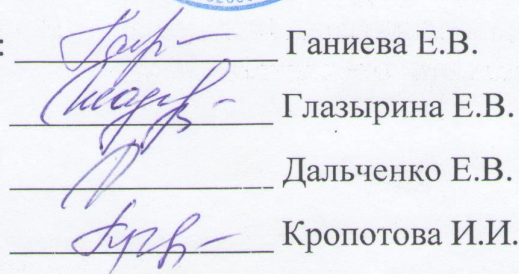 : Ганиева Е.В.
Глазырина Е.В.
Дальченко Е.В.
Кропотова И.И.